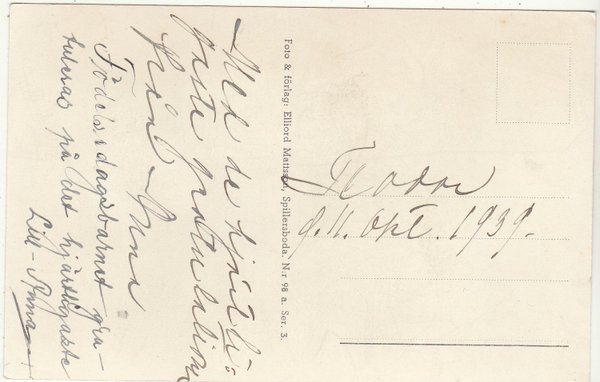 Med de hjärtli-
gaste gratulationer
från Anna
Födelsedagsbarnet gra-
tuleras på det hjärtligaste
Lill-Anna
Foto & förlag: Elliord Mattsson, Spillersboda. N:r 98 a. Ser. 3.
d. 11. Okt. 1939.